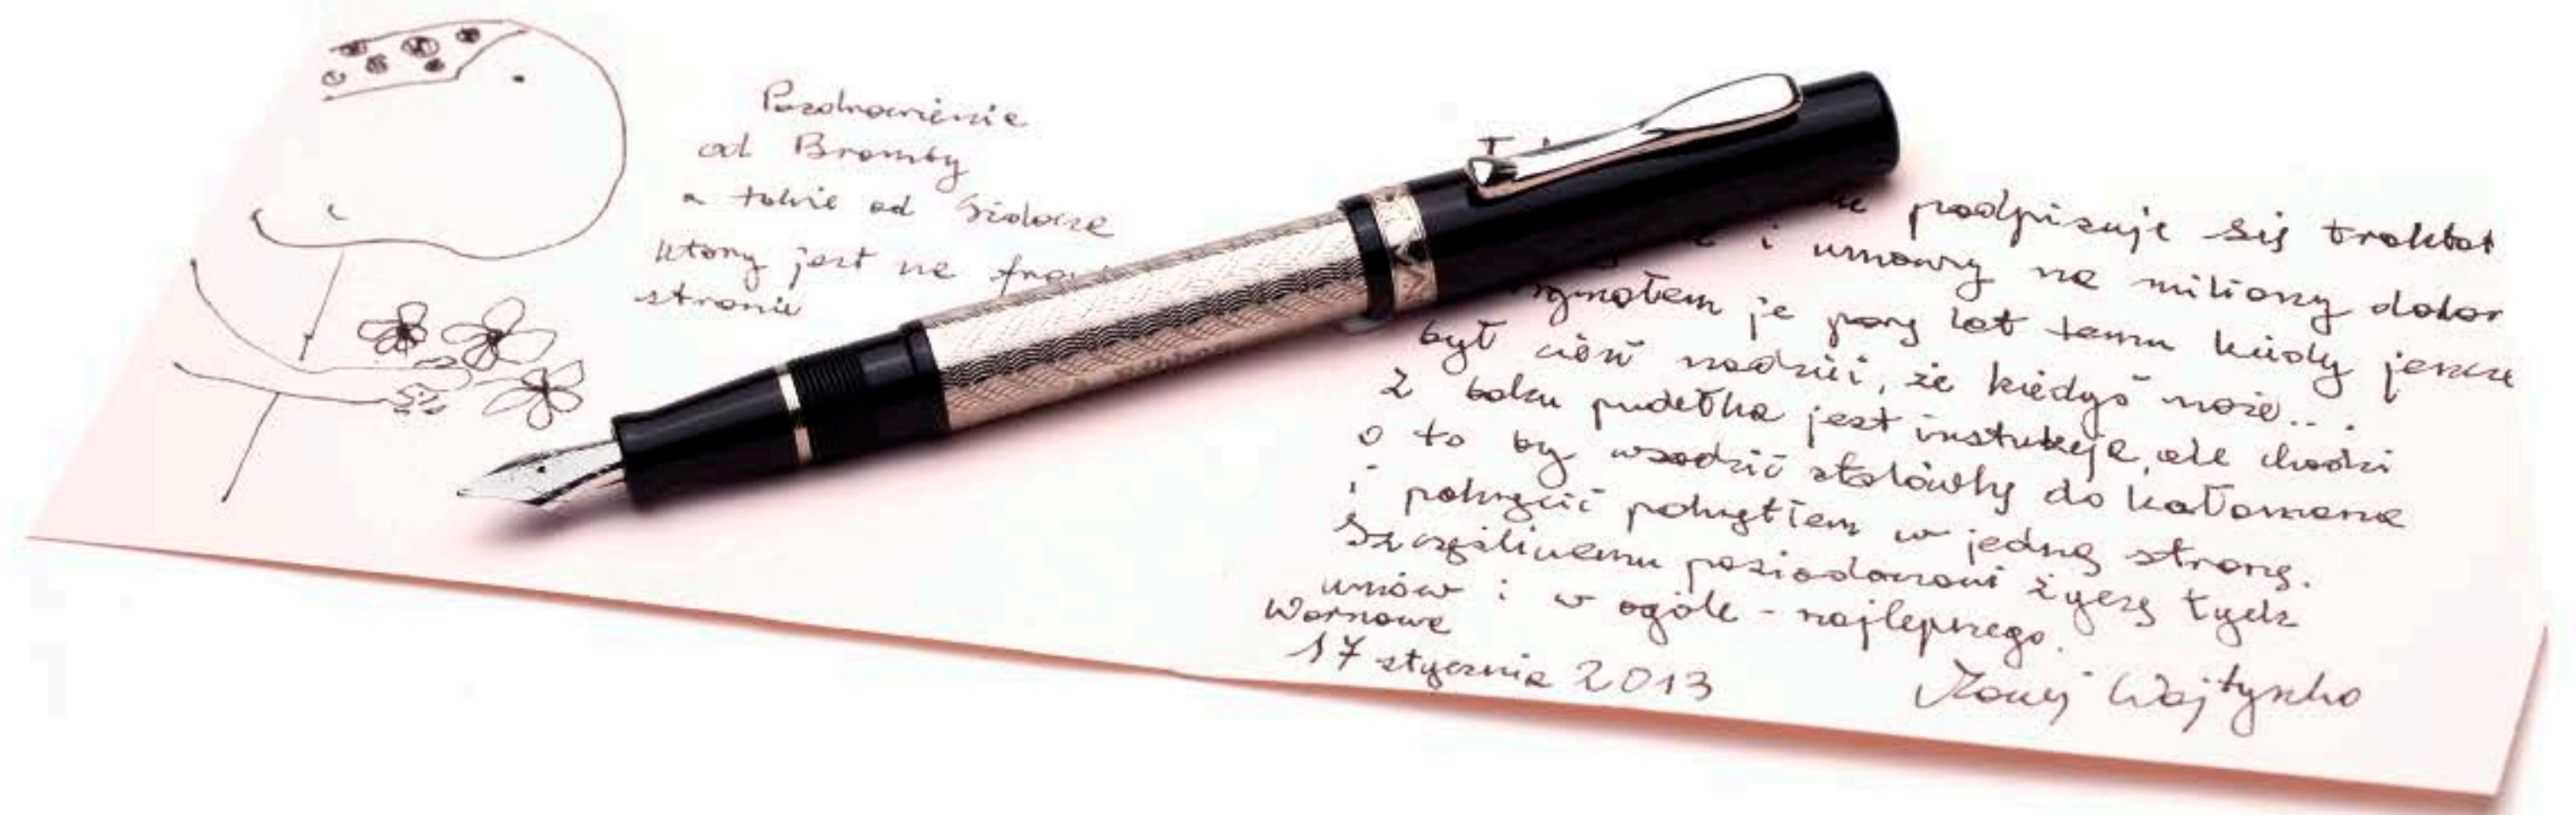 Pozdrowienie
od Bromby
a także od
który jest na
stronie
podpisuje się traktat
i umowy na miliony dolar
je parę lat temu kiedy jeszcze
był cień nadziei, że kiedyś może...
Z boku pudełka jest instukcja, ale chodzi
o to by wsadzić stalówkę do kałamarza
i pokręcić pokrętłem w jedną stronę.
Szczęśliwemu posiadaczowi życzę tych
umów i w ogóle - najlepszego.
Warszawa
17 stycznia 2013
Maciej Wojtyszko